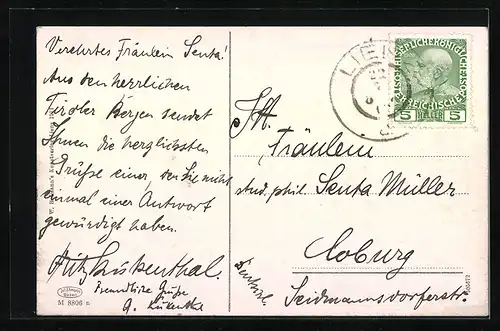 Verehrtes Fräulein Senta!
Aus den herrlichen
Tiroler Bergen sendet
Ihnen die herzlichsten
Grüße einer, den Sie nicht
einmal einer Antwort
gewürdigt haben.
Fritz Kükenthal.
Freundliche Grüße
G. Kükenthal
M 8806 n
LIE
KAISERLICHE KÖNIGLICHE
ÖSTERREICHISCHE
5 HELLER 5
Fräulein
stud. phil. Senta Müller
Coburg
Seidmannsdorferstr.